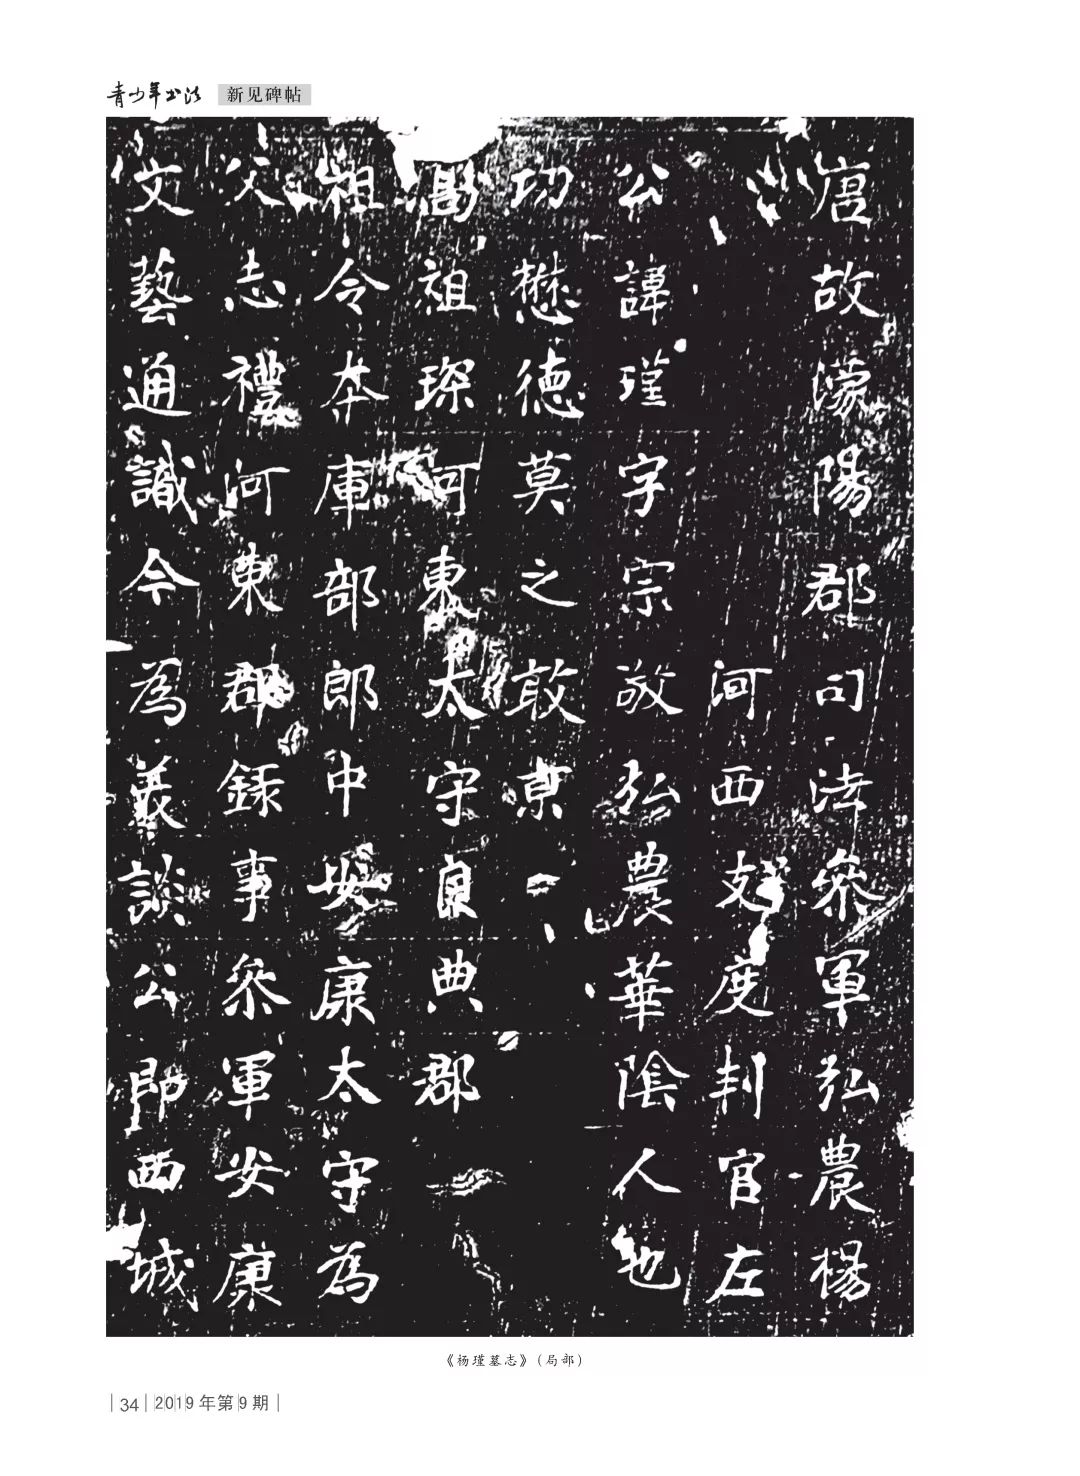 青少年书法 新见碑帖
唐故濛陽郡司法叅軍弘農楊
河西支度判官左
公諱瑾字宗敬弘農華陰人也
功懋德莫之敢京
高祖琛河東太守貞典郡
祖令本庫部郎中安康太守為
父志禮河東郡錄事叅軍安康
文藝通識今為義談公即西城
《杨瑾墓志》（局部）
34 2019年第9期